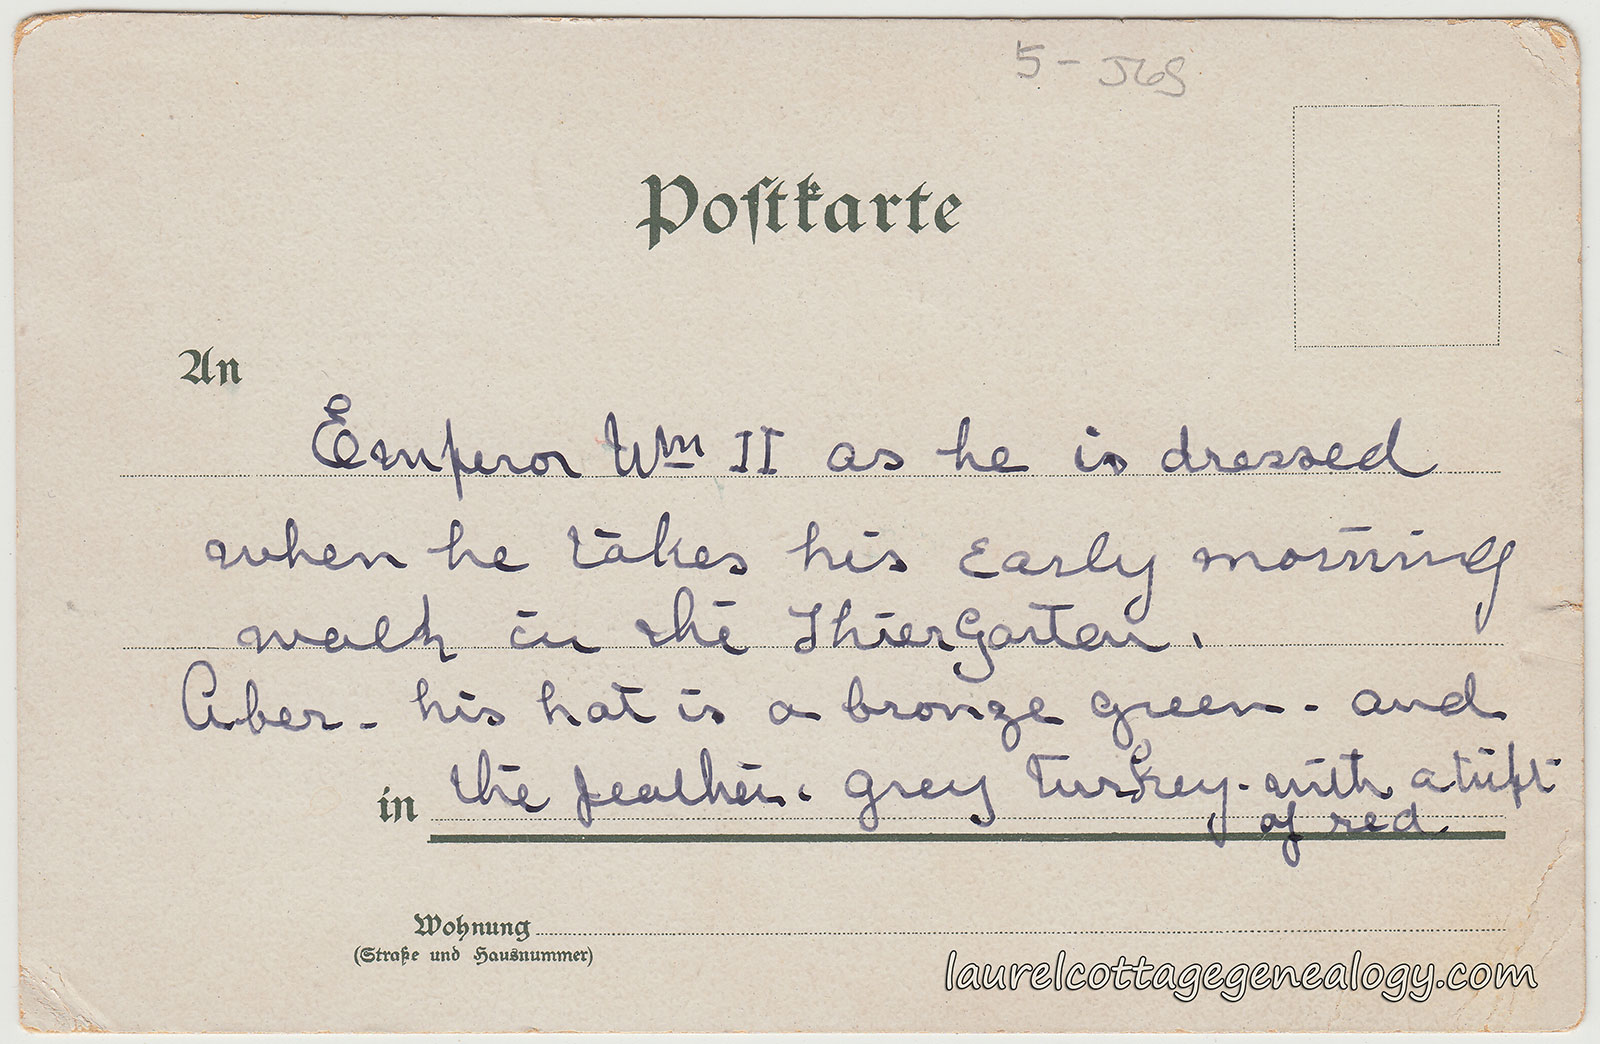 5 - JGS
Postkarte
An
Emperor Wm II as he is dressed
when he takes his early morning
walk in the ThierGarten.
Aber - his hat is a bronze green - and
in the feather. grey Turkey - with a tuft
of red.
Wohnung
(Straße und Hausnummer)
laurelcottagegenealogy.com